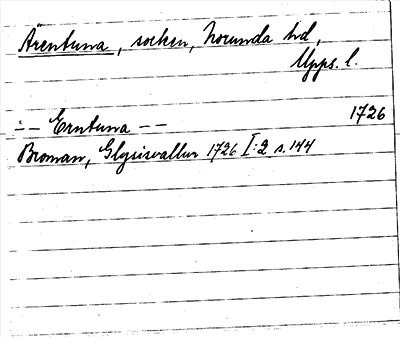 Ärentuna, socken, Norunda hd,
Upps. l.
1726
-- Erntuna --
Broman, Glysisvallur 1726 I:2 s. 144